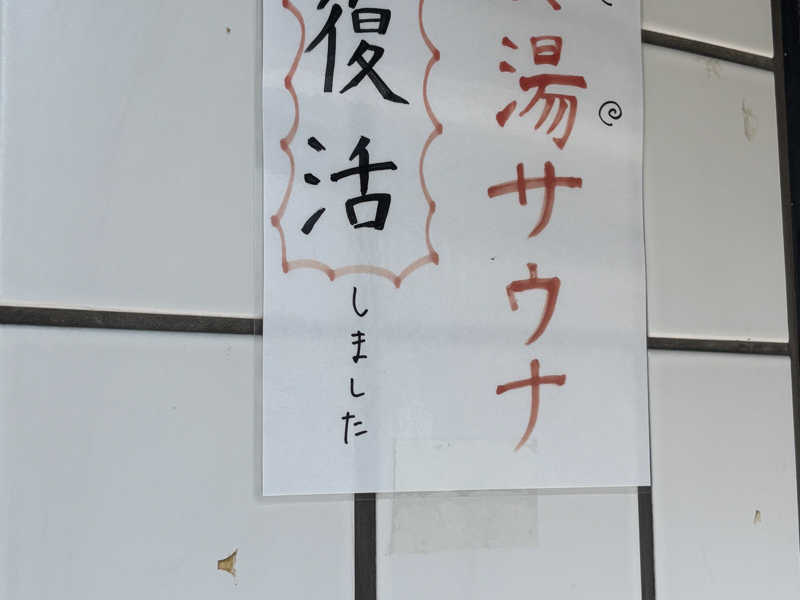 湯サウナ
復活
しました